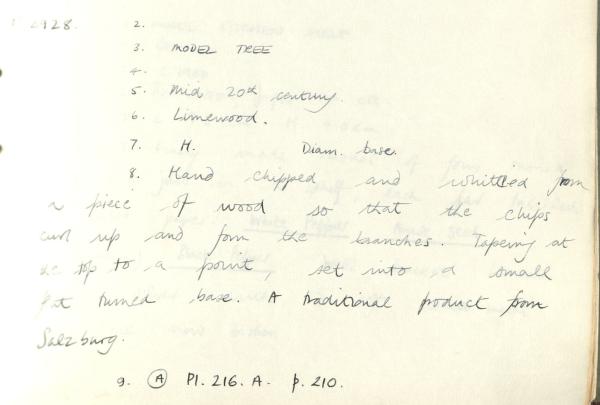 2928. 2.
3. MODEL TREE
4.
5. Mid 20th century.
6. Limewood.
7. H. Diam. base.
8. Hand chipped and whittled from
a piece of wood so that the chips
curl up and form the branches. Tapering at
the top to a point, set into a small
flat turned base. A traditional product from
Salzburg.
9. (A) Pl. 216. A. p. 210.